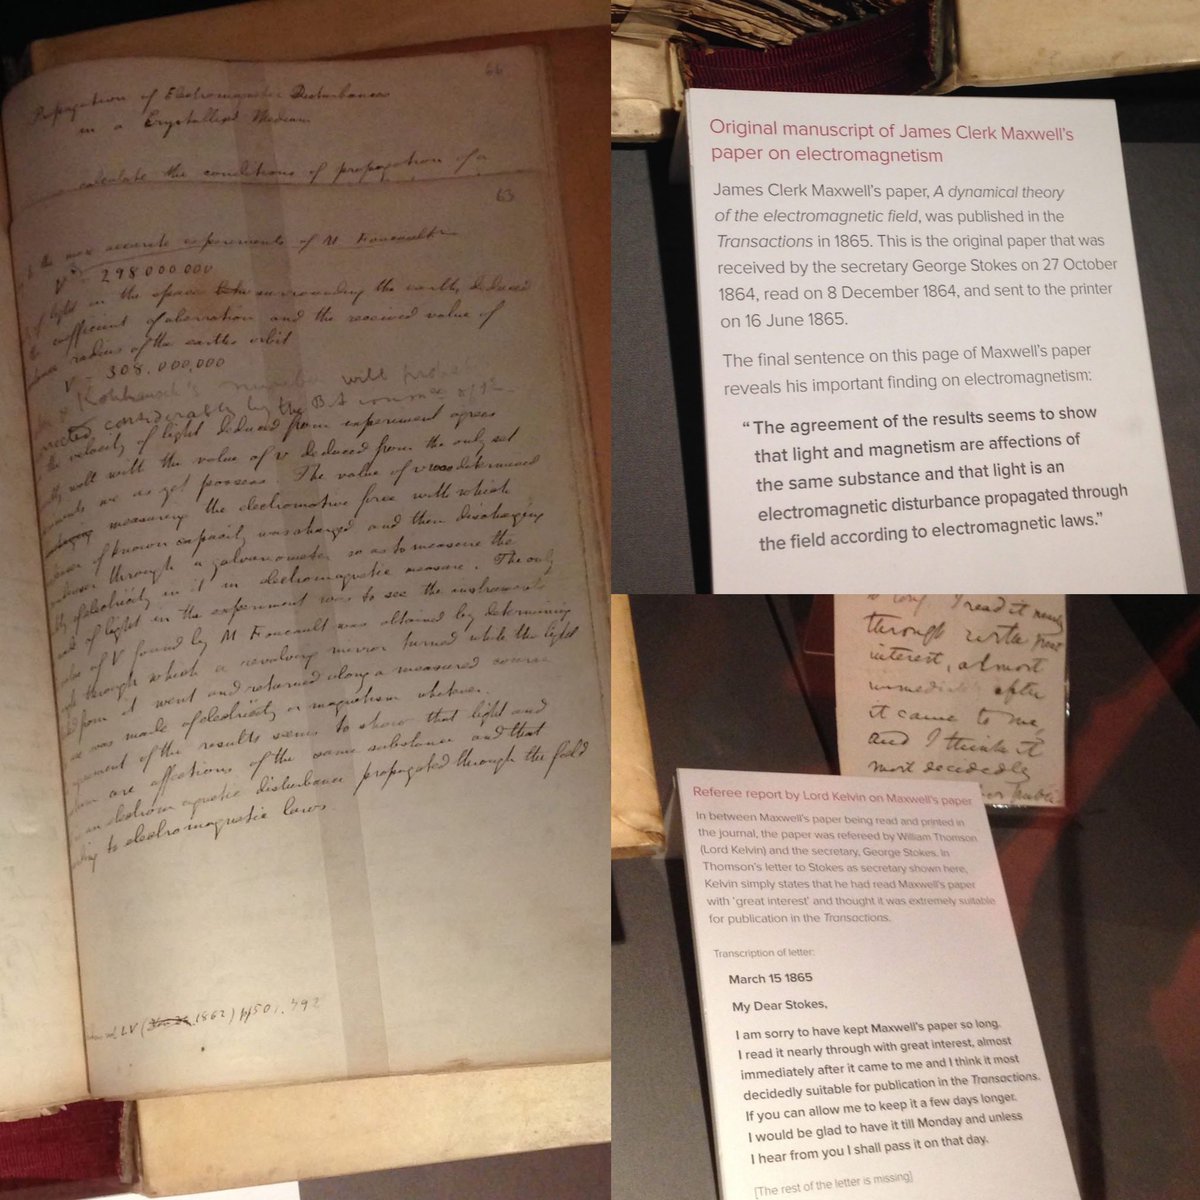 66
Propagation of Electromagnetic Disturbances
in a Crystallized Medium
calculate the conditions of propagation of a
63
the more accurate experiments of M Foucault
V = 298.000.000
of light in the space surrounding the earth, deduced
the coefficient of aberration and the received value of
radius of the earths orbit
V = 308.000,000
Kohlrausch's number will probably
considerably by the BA
the velocity of light deduced from experiment agrees
well with the value of v deduced from the only set
we as yet possess. The value of v was determined
measuring the electromotive force with which
of known capacity was charged and then discharging
through a galvanometer so as to measure the
of electricity in it in electromagnetic measure. The only
of light in the experiment was to see the instruments
of V found by M Foucault was obtained by determining
through which a revolving mirror turned while the light
from it went and returned along a measured course
was made of electricity or magnetism whatever.
of the results seems to show that light and
are affections of the same substance and that
an electromagnetic disturbance propagated through the field
to electromagnetic laws.
LV ( 1862) pp 501, 792
Original manuscript of James Clerk Maxwell's
paper on electromagnetism
James Clerk Maxwell's paper, A dynamical theory
of the electromagnetic field, was published in the
Transactions in 1865. This is the original paper that was
received by the secretary George Stokes on 27 October
1864, read on 8 December 1864, and sent to the printer
on 16 June 1865.
The final sentence on this page of Maxwell's paper
reveals his important finding on electromagnetism:
"The agreement of the results seems to show
that light and magnetism are affections of
the same substance and that light is an
electromagnetic disturbance propagated through
the field according to electromagnetic laws."
so long. I read it nearly
through with great
interest, almost
immediately after
it came to me,
and I think it
most decidedly
Referee report by Lord Kelvin on Maxwell's paper
In between Maxwell's paper being read and printed in
the journal, the paper was refereed by William Thomson
(Lord Kelvin) and the secretary, George Stokes. In
Thomson's letter to Stokes as secretary shown here,
Kelvin simply states that he had read Maxwell's paper
with 'great interest' and thought it was extremely suitable
for publication in the Transactions.
Transcription of letter:
March 15 1865
My Dear Stokes,
I am sorry to have kept Maxwell's paper so long.
I read it nearly through with great interest, almost
immediately after it came to me and I think it most
decidedly suitable for publication in the Transactions.
If you can allow me to keep it a few days longer.
I would be glad to have it till Monday and unless
I hear from you I shall pass it on that day.
[The rest of the letter is missing]